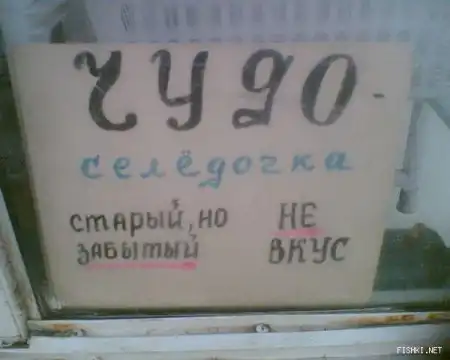 ЧУДО-
селёдочка
старый, но НЕ
ЗАБЫТЫЙ ВКУС
FISHKI.NET